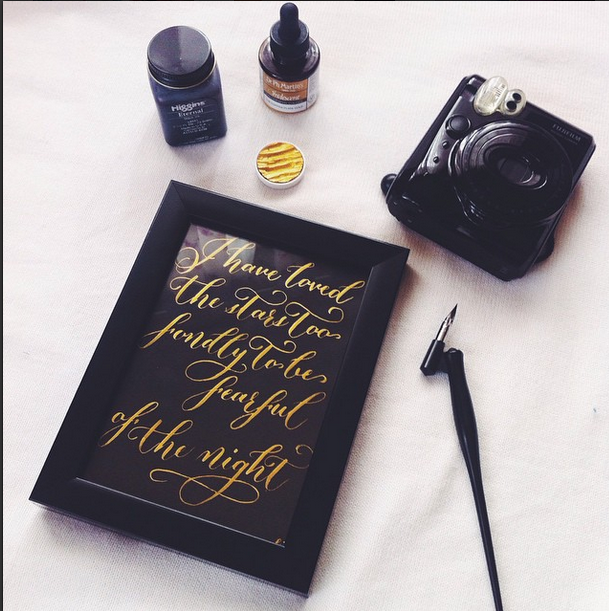 Higgins
Eternal
Dr. Ph. Martin's
Iridescent
FUJIFILM
I have loved
the stars too
fondly to be
fearful
of the night